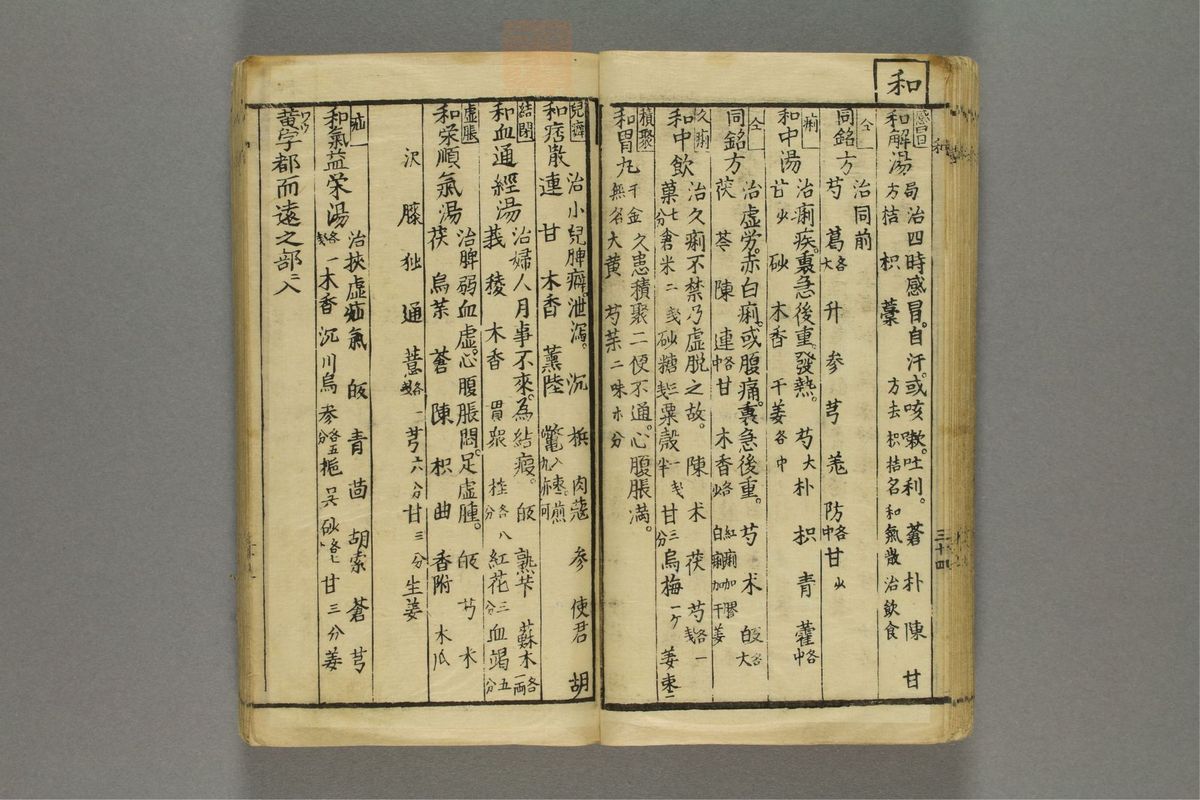 和
感冒
和解湯 局方 治四時感冒。自汗。或咳嗽。吐利。 蒼 朴 陳 甘
桔 枳 藁 方去枳桔名和氣散治飲食
仝
同銘方 治同前
芍 葛各大 升 参 芎 羌 防各中 甘少
痢
和中湯 治痢疾。裏急後重。發熱。 芍大 朴 枳 青 藿各中
甘少 砂 木香 干姜各中
仝
同銘方 治虚労。赤白痢。或腹痛。裏急後重。 芍 朮 皈各大
茯 苓 陳 連各中 甘 木香各少 紅痢加膠 白痢加干姜
久痢
和中飲 治久痢不禁乃虚脱之故。 陳 朮 茯 芍各一戔
菓七分 倉米二戔 砂糖三戔 粟殼一戔半 甘三分 烏梅一ケ 姜 棗二
積聚
和胃丸 千金 久患積聚二便不通。心腹脹満。
無名 大黄 芍 茱 二味木分
兒癖
和痞散 治小兒脾癖。泄瀉。 沉 梹 肉蔻 参 使君 胡
連 甘 木香 薫陸 鱉
結閉
和血通經湯 治婦人月事不來。為結瘕。 皈 熟苄 蘇木各一両
莪 稜 木香 貫衆 桂各八分 紅花三分 血竭五分
虚脹
和栄順氣湯 治脾弱血虚。心腹脹悶。足虚腫。 皈 芍 朮
茯 烏薬 蒼 陳 枳 曲 香附 木瓜
沢 膝 独 通 薏各一戔 芎六分 甘三分 生姜
疝
和氣益栄湯 治挾虚疝氣 皈 青 茴 胡索 蒼 芎
各一戔 木香 沉 川烏 参各五分 梔 呉 砂各七 甘三分 姜
黄字都而遠之部ニ入
三十四